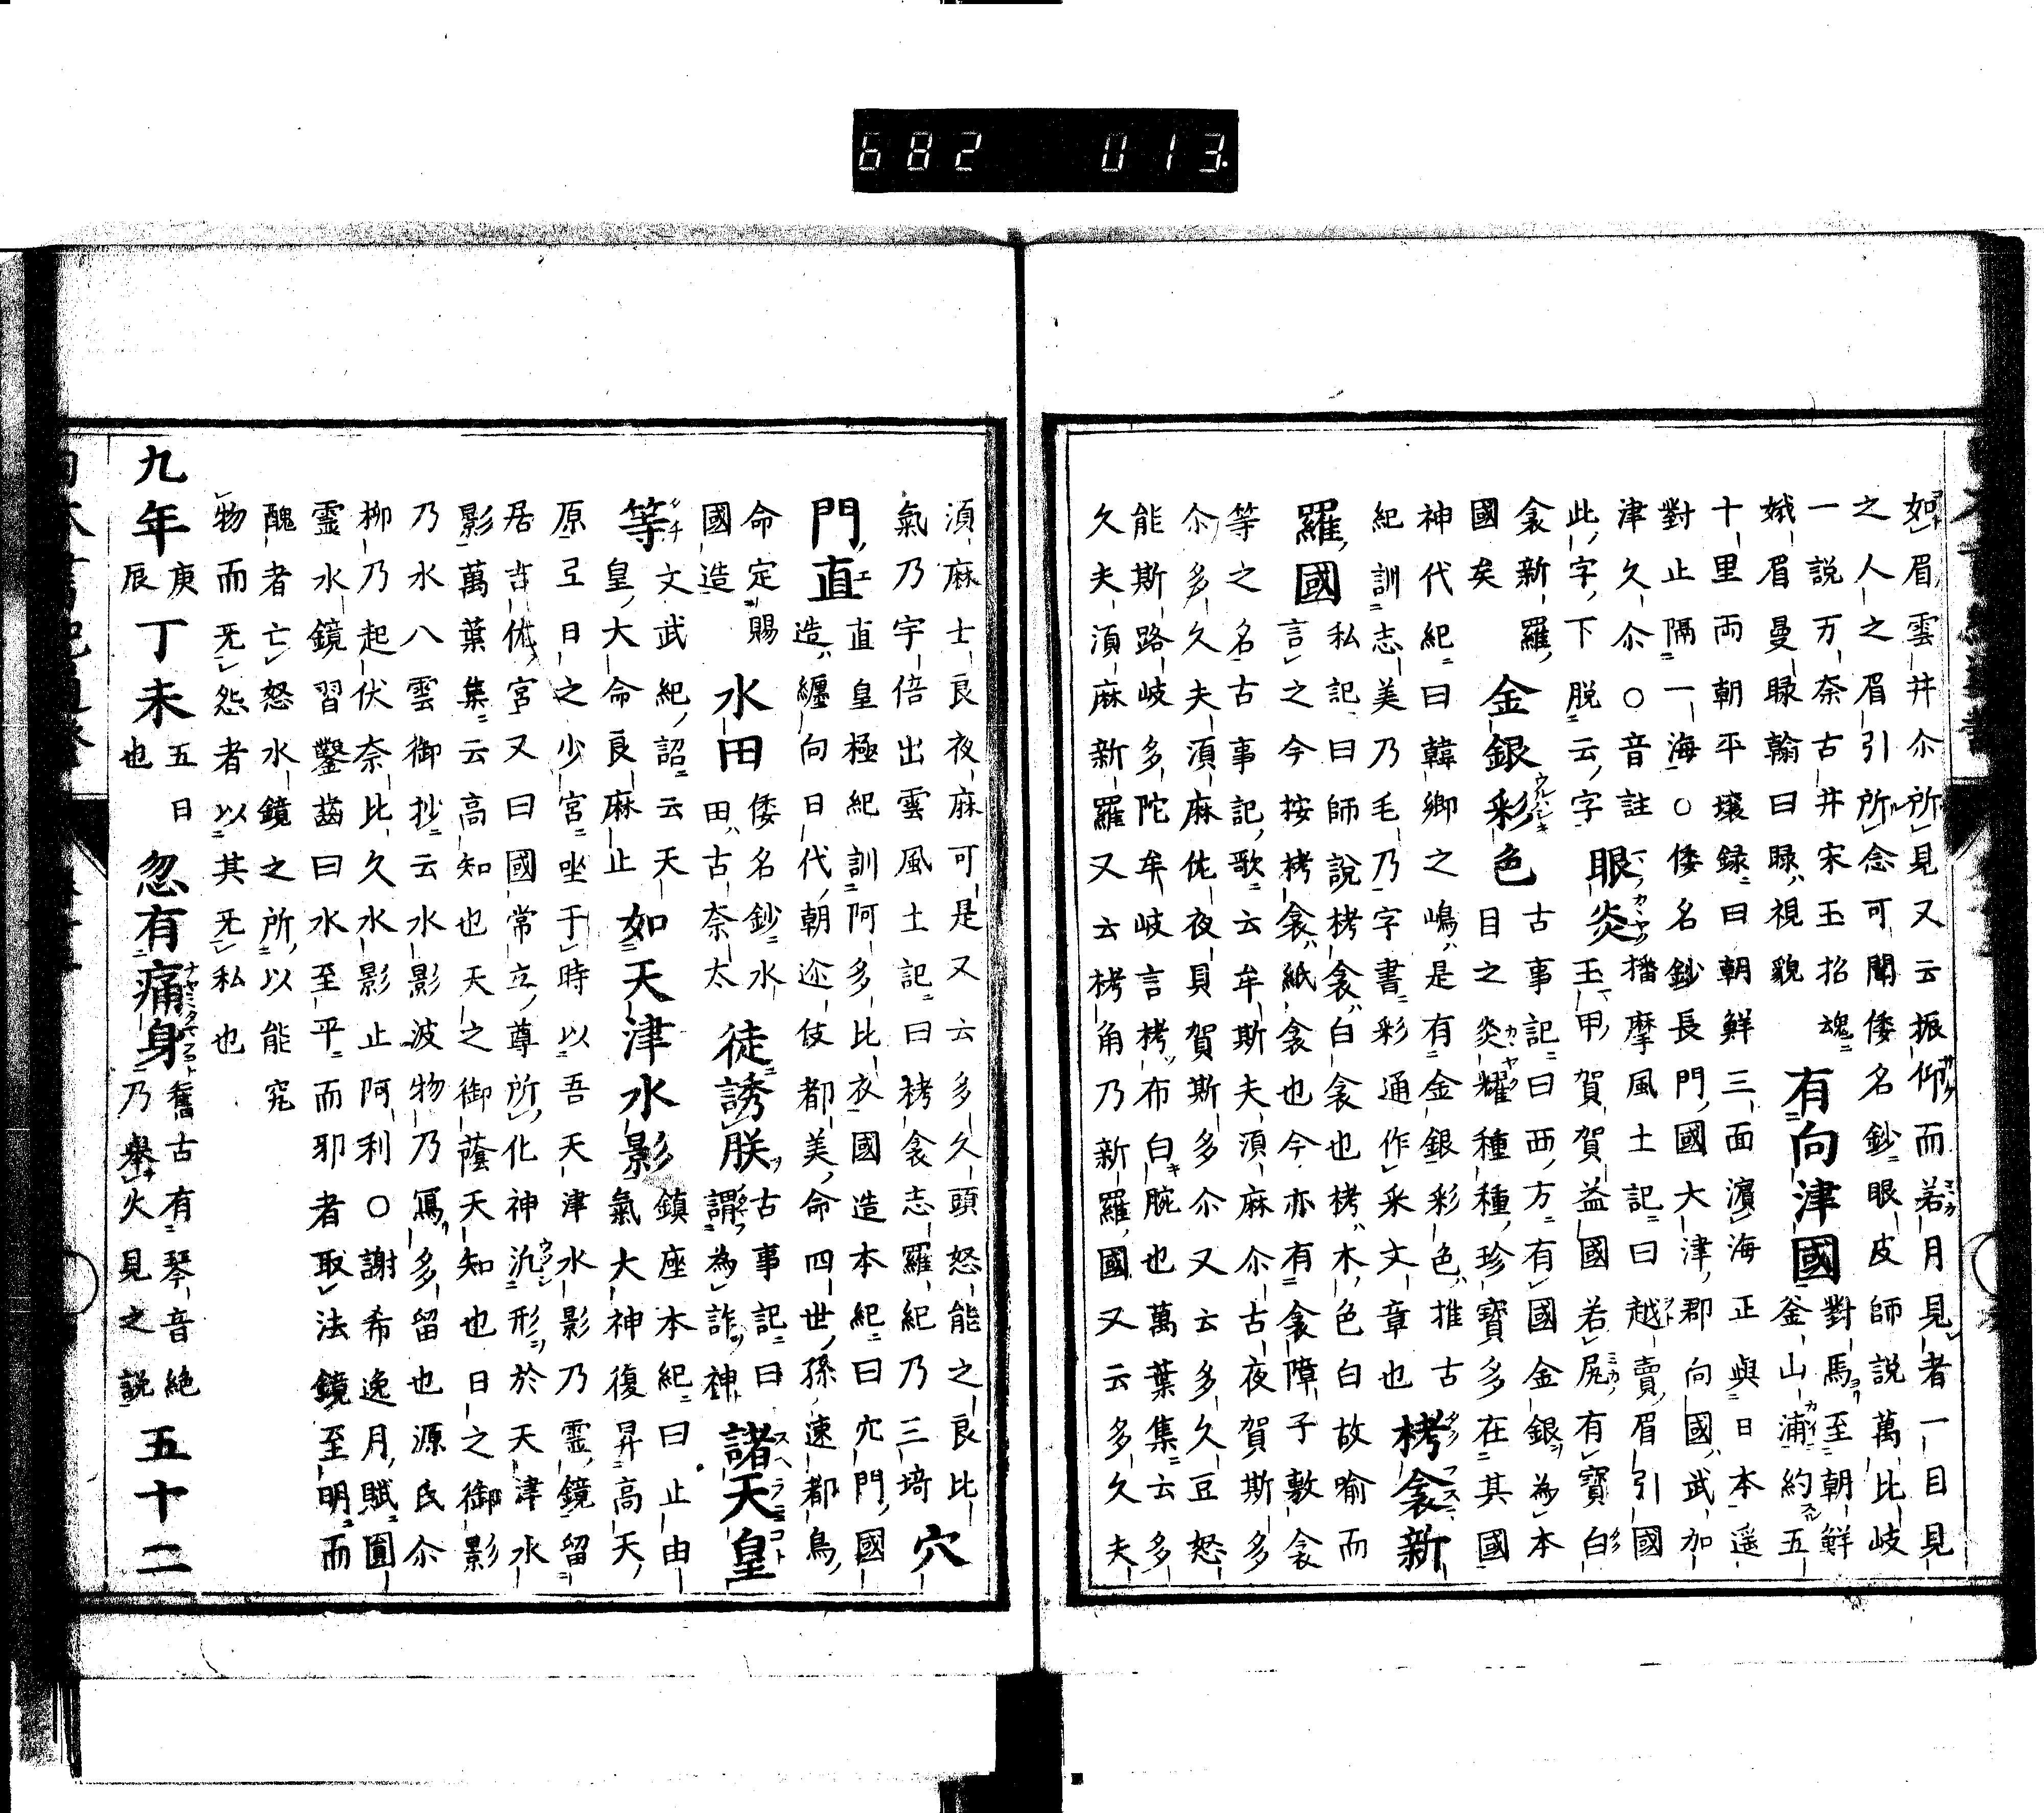 682 013
如眉雲井尒所見又云振仰而若月見者一目見
之人之眉引所念可聞倭名鈔眼皮師説萬比岐
一説万奈古井宋玉招魂 有向津國 對馬至朝鮮
娥眉曼睩翰曰睩視貌 釜山浦約五
十里両朝平壤録曰朝鮮三面濱海正與日本遥
對止隔一海○倭名鈔長門國大津郡向國武加
津久尒○音註 眼炎 播摩風土記曰越賣眉引國
此字下脱云字 玉甲賀賀益國若尻有寶白
衾新羅 金銀彩色 古事記曰西方有國金銀為本
國矣 目之炎耀種種珍寶多在其國
神代紀曰韓郷之嶋是有金銀彩色推古 栲衾新
紀訓志美乃毛乃字書彩通作采文章也
羅國 私記曰師説栲衾白衾也栲木色白故喻而
言之今按栲衾紙衾也今亦有衾障子敷衾
等之名古事記歌云牟斯夫湏麻尒古夜賀斯多
尒多久夫湏麻佐夜具賀斯多尒又云多久豆怒
能斯路岐多陀牟岐言栲布白腕也萬葉集云多
久夫湏麻新羅又云栲角乃新羅國又云多久夫
湏麻士良夜麻可是又云多久頭怒能之良比
氣乃宇倍出雲風土記曰栲衾志羅紀乃三埼 穴
門直 直皇極紀訓阿多比衣國造本紀曰穴門國
造纏向日代朝迩伎都美命四世孫速都鳥
命定賜 水田 倭名鈔水 徒誘朕 古事記曰 諸天皇
國造 田古奈太 謂為詐神
等 文武紀詔云天 如天津水影 鎮座本紀曰止由
皇大命良麻止 氣大神復昇高天
原弖日之少宮坐于時以吾天津水影乃霊鏡留
居吉佐宮又曰國常立尊所化神氿形於天津水
影萬葉集云高知也天之御蔭天知也日之御影
乃水八雲御抄云水影波物乃寫多留也源氏尒
柳乃起伏奈比久水影止阿利○謝希逸月賦圓
靈水鏡習鑿齒曰水至平而邪者取法鏡至明而
醜者亡怒水鏡之所以能究
物而无怨者以其无私也
九年 庚辰 丁未 五日也 忽有痛身 舊古有琴音絶
乃舉火見之説 五十二